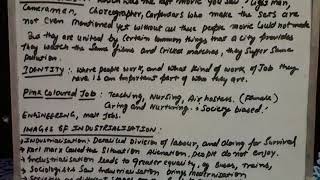 which was the last movie you saw? Lights man,
Cameraman, Choreographer, Carpenters who make the sets are
not even mentioned yet without all these people movie could not made
But they are united by certain common things that a city provides
They watch the same films and Cricket matches, they suffer same
Pollution.
IDENTITY:- where people work, and what kind of work of Job they
have is an important part of who they are.
Pink Coloured Job: Teaching, Nursing, Air hostess. (Female)
Caring and Nurturing. Society biased.
Engineering, male Jobs.
IMAGES OF INDUSTRIALISATION:
Industrialisation: Detailed division of labour, and doing for Survival
Karl marx called the situation Alienation, People do not enjoy.
Industrialisation leads to greater equality, eg Buses, trains,
Sociologists Saw Industrialisation brings modernisation